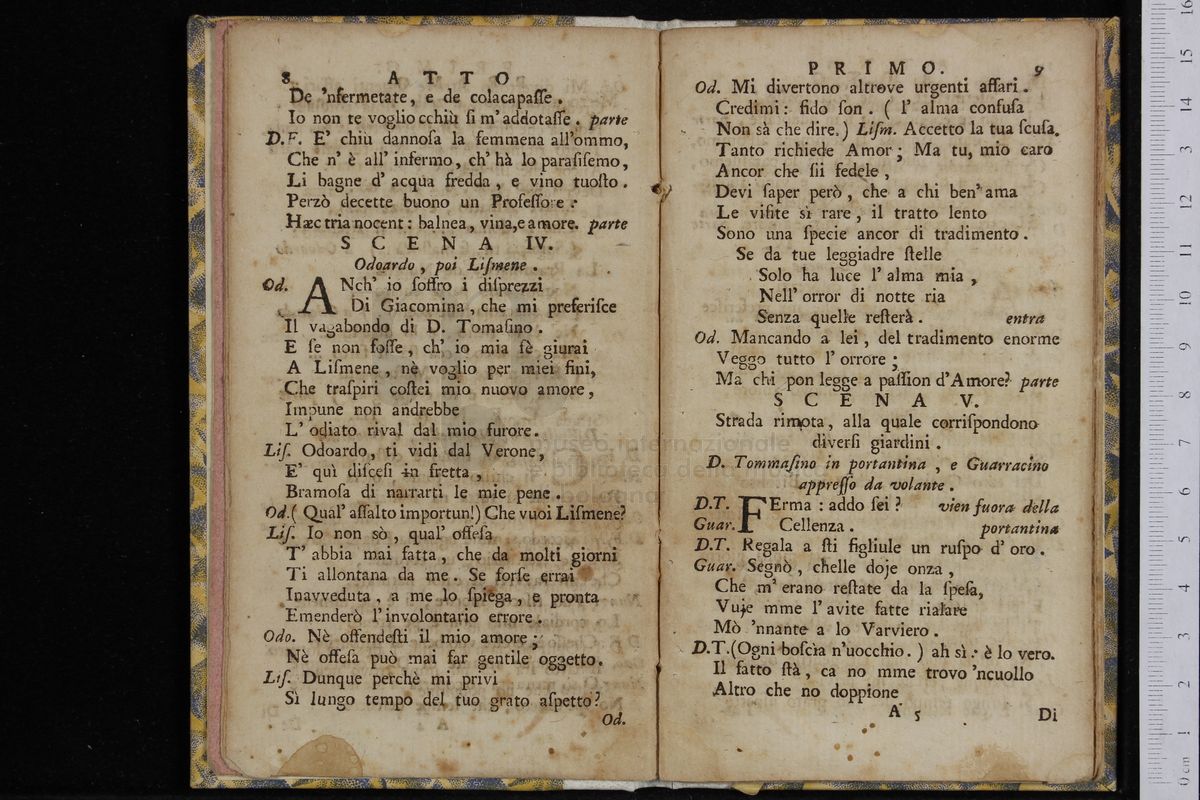 8 A T T O
De 'nfermetate, e de colacapaſſe.
Io non te voglio cchiù ſi m'addotaſſe. parte
D.F. E' chiù dannoſa la femmena all'ommo,
Che n' è all' infermo, ch' hà lo paraſiſemo,
Li bagne d' acqua fredda, e vino tuoſto.
Perzò decette buono un Profeſſore:
Hæc tria nocent: balnea, vina, e amore. parte
S C E N A IV.
Odoardo, poi Liſmene.
Od. ANch' io ſoffro i diſprezzi
Di Giacomina, che mi preferiſce
Il vagabondo di D. Tomaſino.
E ſe non foſſe, ch' io mia fè giurai
A Liſmene, nè voglio per miei fini,
Che traſpiri coſtei mio nuovo amore,
Impune non andrebbe
L' odiato rival dal mio furore.
Liſ. Odoardo, ti vidi dal Verone,
E' quì diſceſi in fretta,
Bramoſa di narrarti le mie pene.
Od.( Qual' aſſalto importun!) Che vuoi Liſmene?
Liſ. Io non sò, qual' offeſa
T' abbia mai fatta, che da molti giorni
Ti allontana da me. Se forſe errai
Inavveduta, a me lo ſpiega, e pronta
Emenderò l'involontario errore.
Odo. Nè offendeſti il mio amore;
Nè offeſa può mai far gentile oggetto.
Liſ. Dunque perchè mi privi
Sì lungo tempo del tuo grato aſpetto?
Od.
P R I M O. 9
Od. Mi divertono altrove urgenti affari.
Credimi: fido ſon. ( l' alma confuſa
Non sà che dire.) Liſm. Accetto la tua ſcuſa.
Tanto richiede Amor; Ma tu, mio caro
Ancor che ſii fedele,
Devi ſaper però, che a chi ben' ama
Le viſite sì rare, il tratto lento
Sono una ſpecie ancor di tradimento.
Se da tue leggiadre ſtelle
Solo ha luce l' alma mia,
Nell' orror di notte ria
Senza quelle reſterà. entra
Od. Mancando a lei, del tradimento enorme
Veggo tutto l' orrore;
Ma chi pon legge a paſſion d'Amore? parte
S C E N A V.
Strada rimota, alla quale corriſpondono
diverſi giardini.
D. Tommaſino in portantina, e Guarracino
appreſſo da volante.
D.T. FErma: addo ſei? vien fuora della
Guar. Cellenza. portantina
D.T. Regala a ſti figliule un ruſpo d' oro.
Guar. Segnò, chelle doje onza,
Che m' erano reſtate da la ſpeſa,
Vuje mme l' avite fatte rialare
Mò 'nnante a lo Varviero.
D.T.(Ogni boſcìa n'uocchio.) ah sì: è lo vero.
Il fatto ſtà, ca no mme trovo 'ncuollo
Altro che no doppione
A 5 Di
museo internazionale
e biblioteca della musica
bologna